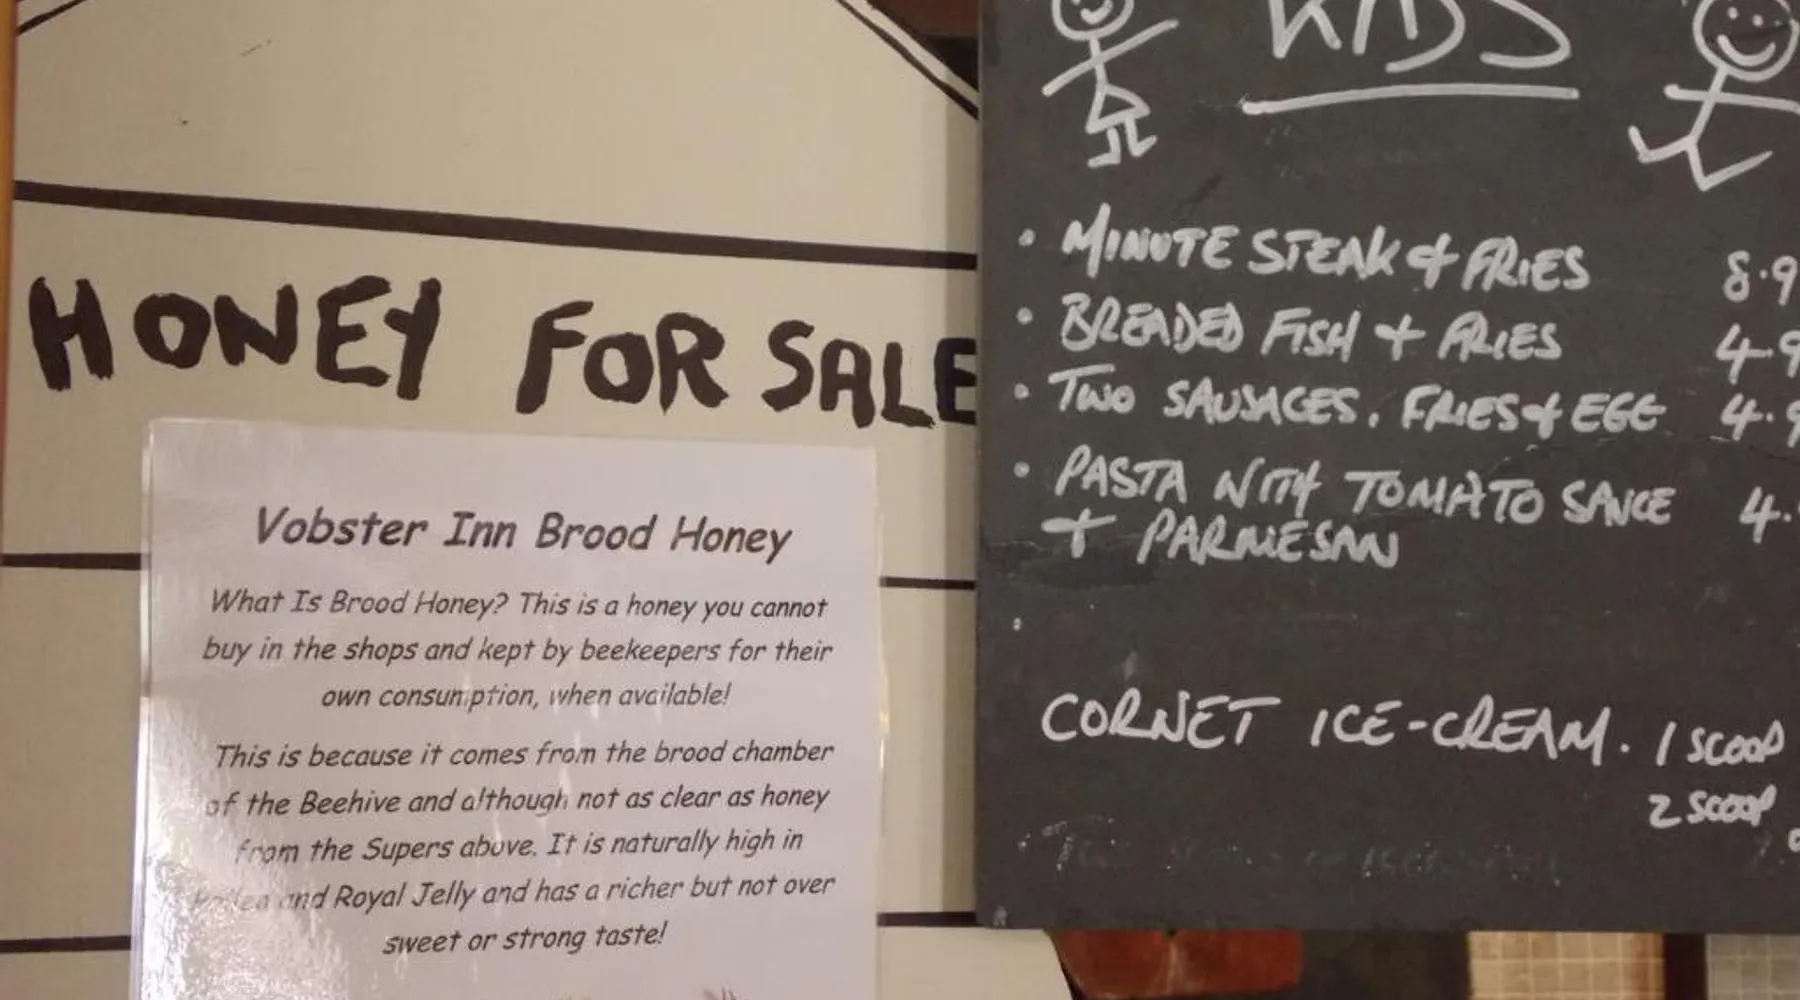 HONEY FOR SALE
Vobster Inn Brood Honey
What Is Brood Honey? This is a honey you cannot
buy in the shops and kept by beekeepers for their
own consumption, when available!
This is because it comes from the brood chamber
of the Beehive and although not as clear as honey
from the Supers above. It is naturally high in
Pollen and Royal Jelly and has a richer but not over
sweet or strong taste!
KIDS
• MINUTE STEAK & FRIES 8.9
• BREADED FISH + FRIES 4.9
• TWO SAUSAGES, FRIES & EGG 4.9
• PASTA WITH TOMATO SAUCE 4.
+ PARMESAN
CORNET ICE-CREAM. 1 SCOOP
2 SCOOP